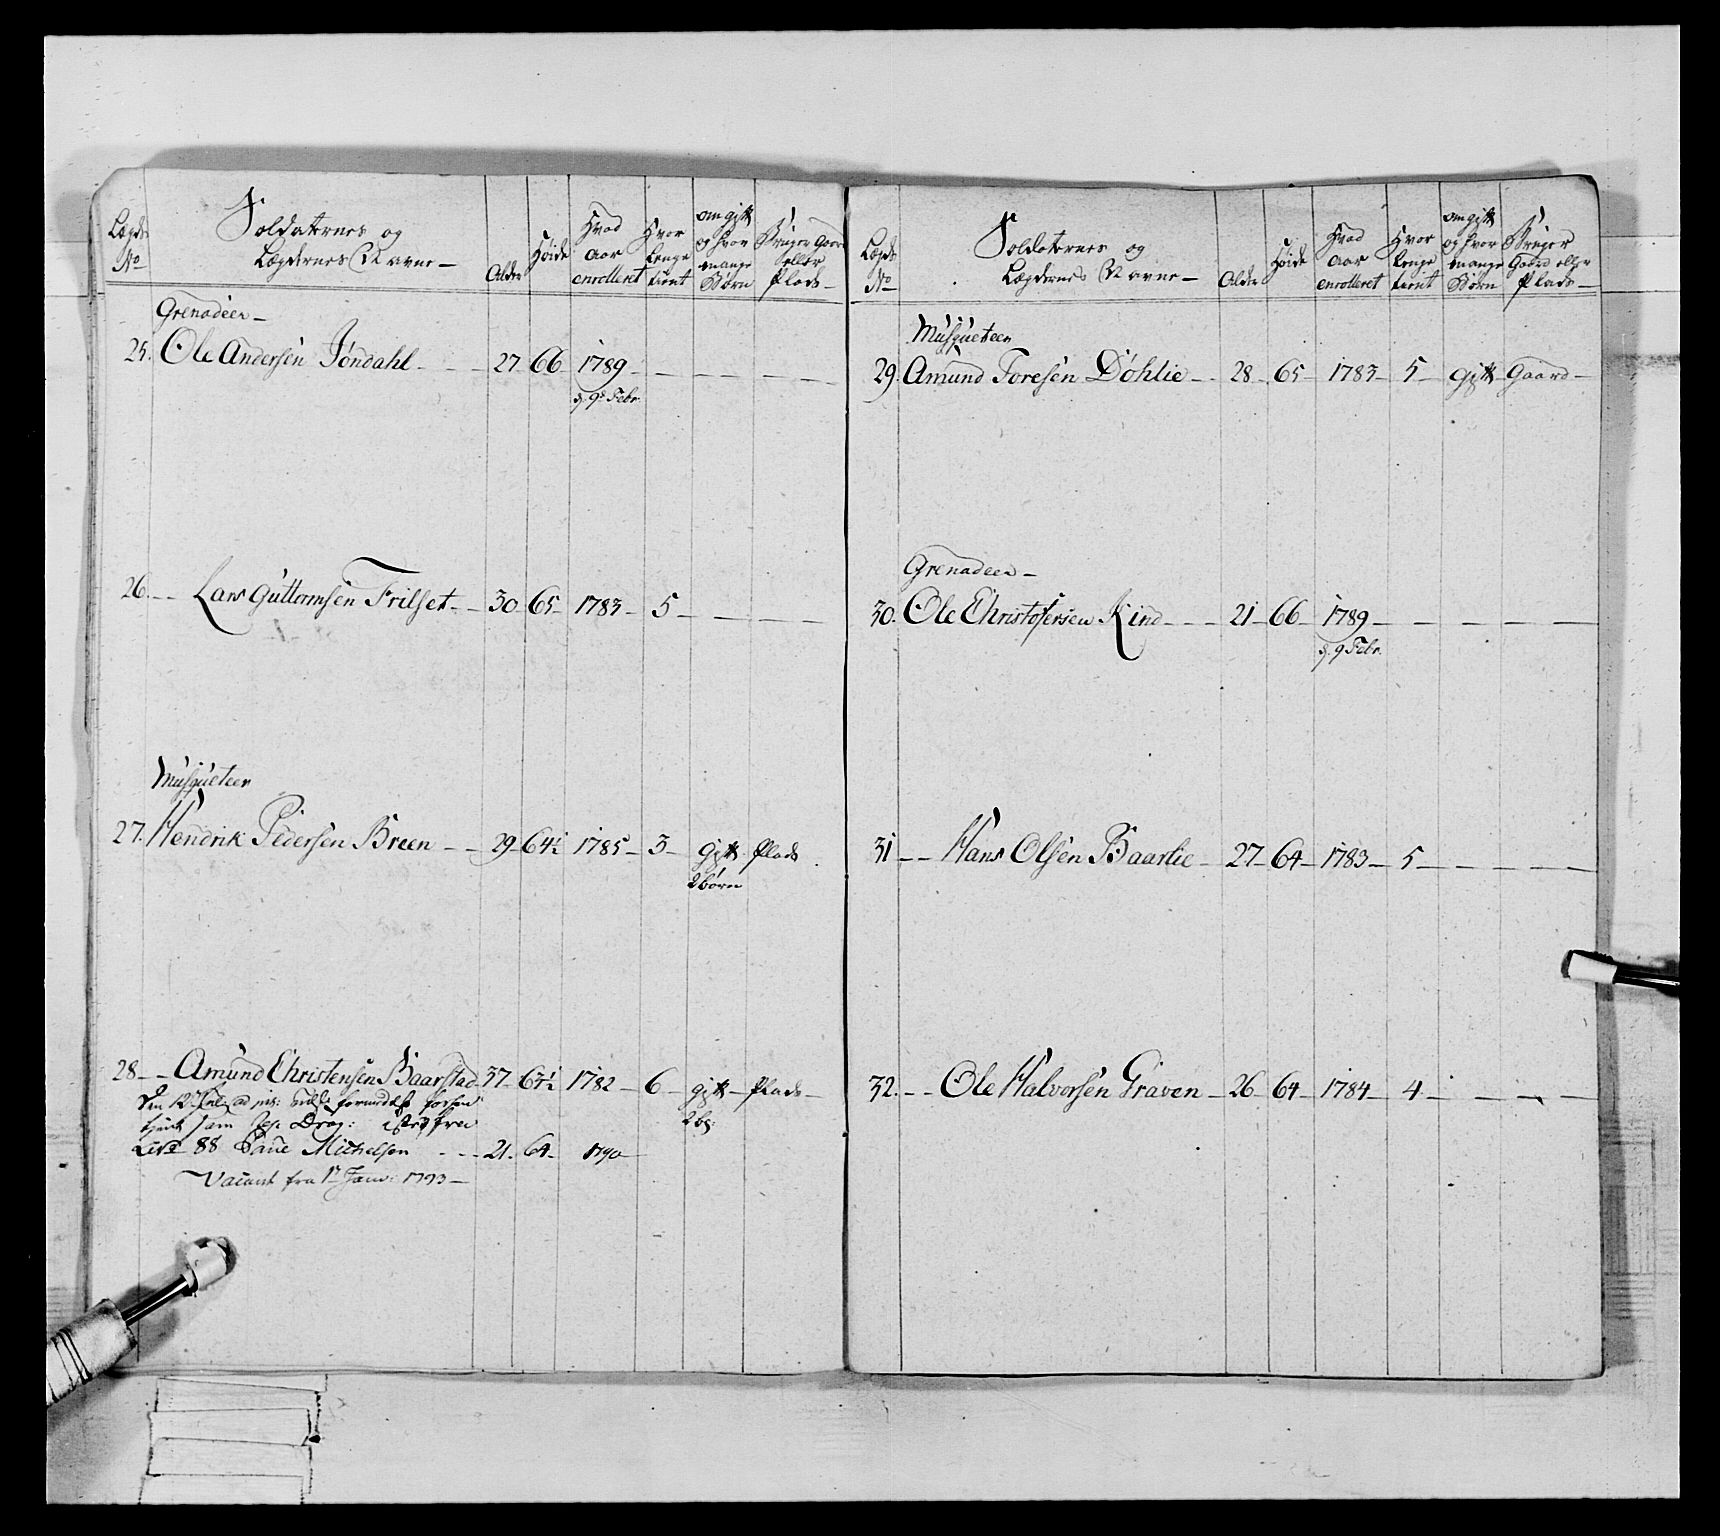 Lægds No | Soldaternes og Lægdernes Navne – | Alder | Høide | Hvad Aar enrolleret | Hvor lenge tient | om gift og hvor mange Børn | Bruger Gaard eller Plads –
Grenadeer –
25. Ole Andersen Jöndahl - - - 27. 66 1789 - - - -
d. 9de Febr.
26. - - Lars Guttormsen Frilset - - 30 65 1783 - 5 - - -
Musqueteer
27. Hendrik Pedersen Breen - - 29 64½ 1785 - 3 - gift. Plads
2 börn
28 - - Amund Christensen Baarstad 37 63½ 1782 - 6 - gift - Plads -
Den 12
tient som Drag:
88 Michelsen - - - 21. 64 - 1790 -
Vacant fra 1te Janv: 1793 -
Lægds No | Soldaternes og Lægdernes Navne – | Alder | Høide | Hvad Aar enrolleret | Hvor lenge tient | om gift og hvor mange Börn | Bruger Gaard eller Plads –
Musqueteer
29. Amund Toresen Döhlie - - 28 65 1783 - 5 - gift Gaard -
Grenadeer –
30. Ole Christofersen Kind - - - 21 66 1789 - - - -
d. 9 Febr.
31 - - Hans Olsen Baarlie - 27 - 64 - 1783 - 5 - - - -
32. - - Ole Halvorsen Graven - 26 64 - 1784 - 4 - - - -